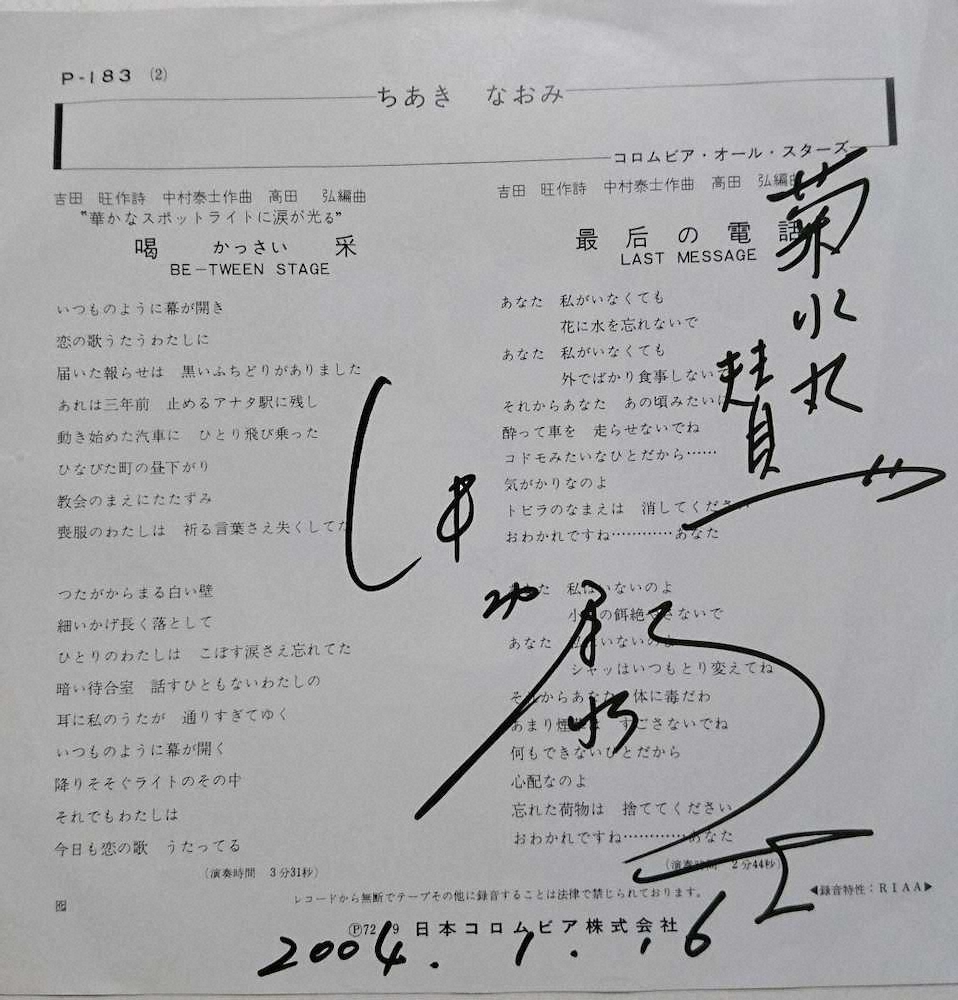 P-183 (2)
ちあき なおみ
コロムビア・オール・スターズ
吉田 旺作詩 中村泰士作曲 高田 弘編曲
"華かなスポットライトに涙が光る"
喝 かっさい 采
BE-TWEEN STAGE
いつものように幕が開き
恋の歌うたうわたしに
届いた報らせは 黒いふちどりがありました
あれは三年前 止めるアナタ駅に残し
動き始めた汽車に ひとり飛び乗った
ひなびた町の昼下がり
教会のまえにたたずみ
喪服のわたしは 祈る言葉さえ失くしてた
つたがからまる白い壁
細いかげ長く落として
ひとりのわたしは こぼす涙さえ忘れてた
暗い待合室 話すひともないわたしの
耳に私のうたが 通りすぎてゆく
いつものように幕が開く
降りそそぐライトのその中
それでもわたしは
今日も恋の歌 うたってる
(演奏時間 3分31秒)
吉田 旺作詩 中村泰士作曲 高田 弘編曲
最后の電話
LAST MESSAGE
あなた 私がいなくても
花に水を忘れないで
あなた 私がいなくても
外でばかり食事しないで
それからあなた あの頃みたいに
酔って車を 走らせないでね
コドモみたいなひとだから……
気がかりなのよ
トビラのなまえは 消してくださ
おわかれですね…………あなた
あなた 私はいないのよ
小鳥の餌絶やさないで
あなた 私はいないのよ
シャツはいつもとり変えてね
それからあなた 体に毒だわ
あまり煙草は すごさないでね
何もできないひとだから
心配なのよ
忘れた荷物は 捨ててください
おわかれですね…………あなた
(演奏時間 2分44秒)
レコードから無断でテープその他に録音することは法律で禁じられております。
◀録音特性：RIAA▶
Ⓟ72 9 日本コロムビア株式会社
菊水丸
賛
2004.1.16